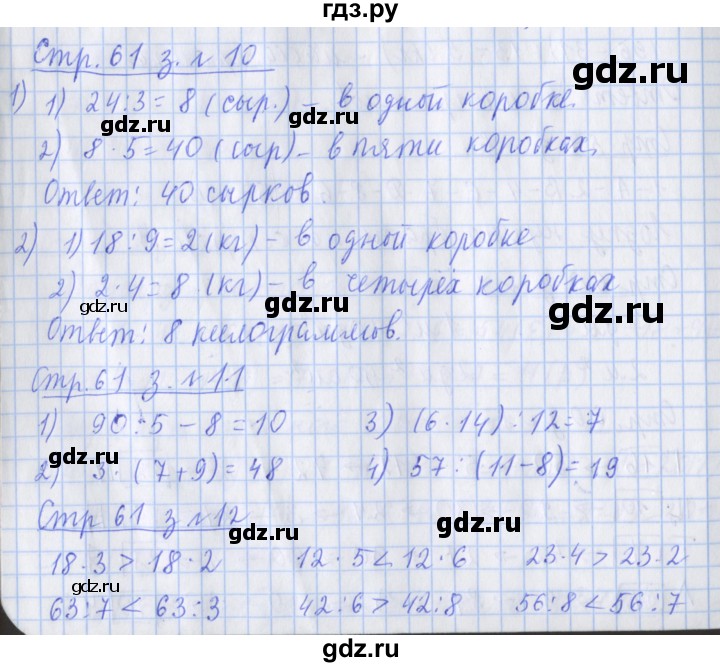 гдз.ру
Стр. 61 з. № 10
1) 1) 24:3 = 8 (сыр.) – в одной коробке.
gdz.ru gdz.ru
gdz.ru
2) 8 · 5 = 40 (сыр) – в пяти коробках,
Ответ: 40 сырков.
gdz.ru
2) 1) 18 : 9 = 2 (кг) – в одной коробке
2) 2 · 4 = 8 (кг) – в четырёх коробках
gdz.ru gdz.ru gdz.ru
Ответ: 8 килограммов.
gdz.ru
Стр. 61 з. № 11
1) 90 : 5 – 8 = 10 3) (6 · 14) : 12 = 7
gdz.ru gdz.ru
2) 3 · (7 + 9) = 48 4) 57 : (11 – 8) = 19
Стр 61 з № 12
gdz.ru
18 · 3 > 18 · 2 12 · 5 < 12 · 6 23 · 4 > 23 · 2
gdz.ru
63 : 7 < 63 : 3 42 : 6 > 42 : 8 56 : 8 < 56 : 7
gdz.ru